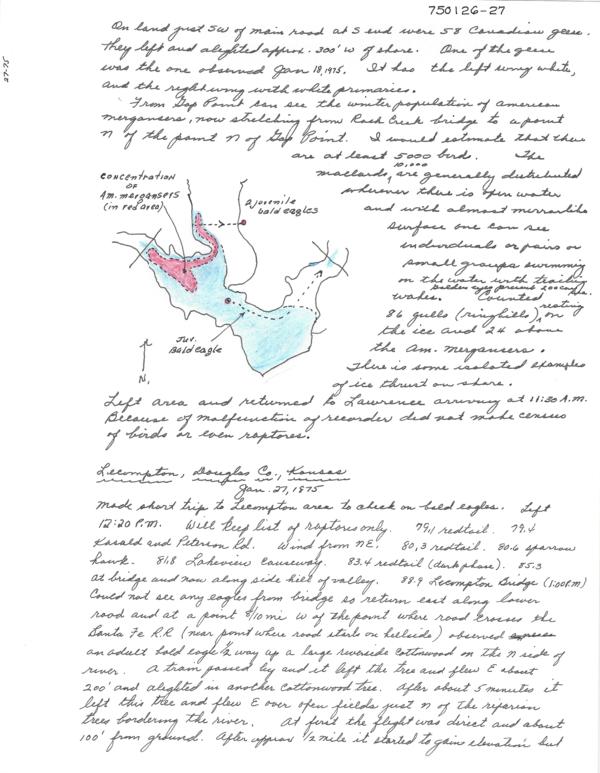 750126-27
27-75
On land just SW of main road at S end were 58 Canadian geese.
They left and alighted approx. 300' W of shore. One of the geese
was the one observed Jan 18, 1975. It has the left wing white,
and the right wing with white primaries.
From Gap Point can see the winter population of american
mergansers, now stretching from Rock Creek bridge to a point
N of the point N of Gap Point. I would estimate that there
are at least 5000 bird. The
10,000
mallards, are generally distributed
wherever there is open water
and with almost mirrorlike
surface one can see
individuals or pairs or
small groups swimming
on the water with trailing
Golden eyes present 200
wakes. Counted
resting
86 gulls (ringbills), on
the ice and 24 above
the Am. mergansers.
There is some isolated examples
of ice thrust on shore.
CONCENTRATION
OF
Am. mergansers
(in red area)
2 juvenile
bald eagles
Juv.
Bald eagle
N.
Left area and returned to Lawrence arriving at 11:30 A.M.
Because of malfunction of recorder did not make census
of birds or even raptores.
Lecompton, Douglas Co., Kansas
Jan. 27, 1975
Made short trip to Lecompton area to check on bald eagles. Left
12:20 P.M. Will keep list of raptores only. 79.1 redtail. 79.4
Kasold and Peterson Rd. Wind from NE. 80.3 redtail. 80.6 sparrow
hawk. 81.8 Lakeview Causeway. 83.4 redtail (dark phase). 85.3
at bridge and now along side hill of valley. 88.9 Lecompton Bridge (1:00 P.M)
Could not see any eagles from bridge so return east along lower
road and at a point 8/10 mi W of the point where road crosses the
Santa Fe R.R (near point where road starts on hillside) observed
an adult bald eagle 1/2 way up a large riverside cottonwood on the N side of
river. A train passed by and it left the tree and flew E about
200' and alighted in another cottonwood tree. After about 5 minutes it
left this tree and flew E over open fields just N of the riparian
trees bordering the river. At first the flight was direct and about
100' from ground. After approx 1/2 mile it started to gain elevation but